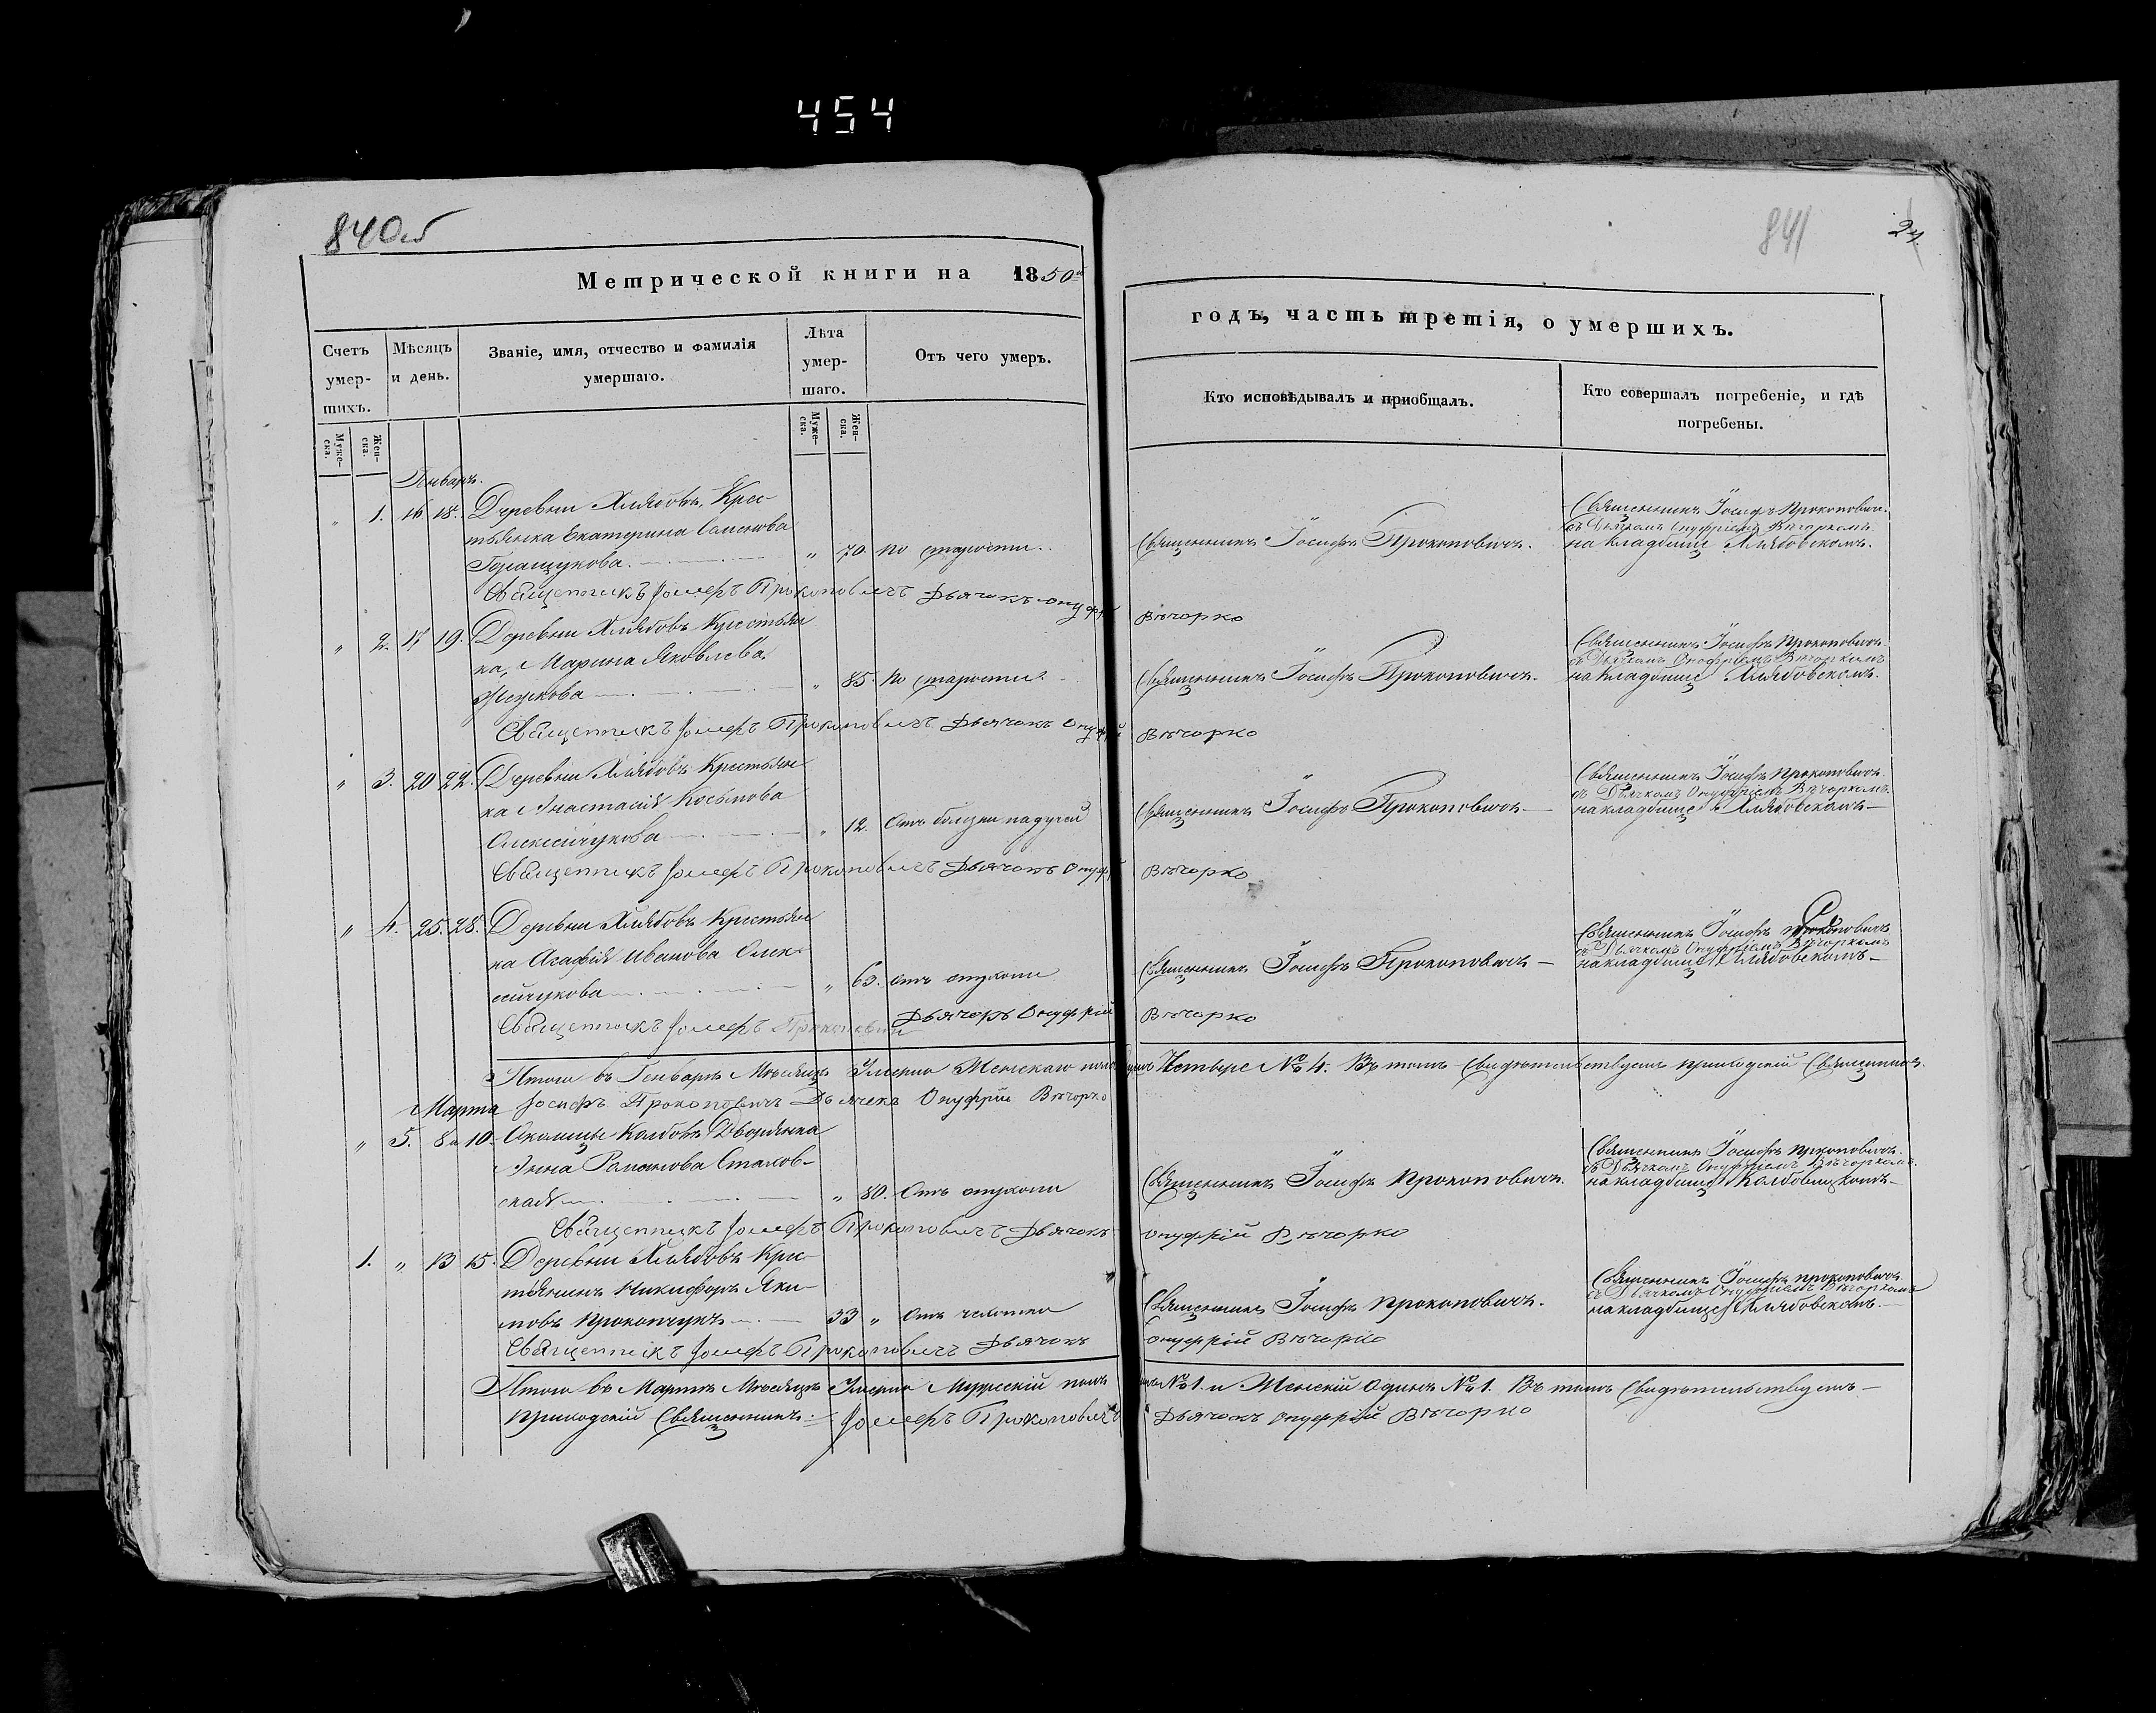 454
840об
Метрической книги на 1850й
Счетъ умер-шихъ.
Мѣсяцъ и день.
Званіе, имя, отчество и фамилія умершаго.
Лѣта умер-шаго.
Отъ чего умеръ.
Муже-ска.
Жен-ска.
Муже-ска.
Жен-ска.
Январь.
" 1. 16 18. Деревни Хлябовъ, Крес-
тьянка Екатерина Семенова
" 70. по старости.
Священникъ Іосифъ Прокоповичъ Дьячокъ Онуфрій
" 2. 17 19. Деревни Хлябовъ Крестьян
ка, Марина Яковлева
" 85. по старости
Священникъ Іосифъ Прокоповичъ Дьячокъ Онуфрій
" 3. 20 22. Деревни Хлябовъ Крестьян
ка Анастасія Косьмова
Олексійчукова " 12. Отъ болезни падучей
Священникъ Іосифъ Прокоповичъ Дьячокъ Онуфрій
" 4. 25. 28. Деревни Хлябовъ Крестьян
ка Агафія Иванова Олек-
сійчукова " 63. отъ опухоли
Священникъ Іосифъ Прокоповичъ Дьячокъ Онуфрій
Итого въ Генварѣ Мѣсяцѣ Умерло Женскаго пола
Марта Іосифъ Прокоповичъ Дьячекъ Онуфрій Вѣчорко
" 5. 8 10. Околицы Колбовъ Дворянка
Анна Романова Стахов-
ская " 80. Отъ опухоли
Священникъ Іосифъ Прокоповичъ Дьячокъ
1. " 13 15. Деревни Хлябовъ Крес-
тьянинъ Никифоръ Яки-
мовъ Прокопчукъ 33 " Отъ чахотки
Священникъ Іосифъ Прокоповичъ Дьячокъ
Итого въ Мартѣ Мѣсяцѣ Умерло Мужескій полъ
приходскій Священникъ: Іосифъ Прокоповичъ
841
годъ, часть третія, о умершихъ.
Кто исповѣдывалъ и пріобщалъ.
Кто совершалъ погребеніе, и гдѣ погребены.
Священникъ Іосифъ Прокоповичъ.
Священникъ Іосифъ Прокоповичъ
съ Дьячкомъ Онуфріемъ Вѣчоркомъ.
на кладбище Хлябовскомъ.
Вѣчорко
Священникъ Іосифъ Прокоповичъ.
Священникъ Іосифъ Прокоповичъ
съ Дьячкомъ Онофріемъ Вѣчоркомъ
на кладбище Хлябовскомъ.
Вѣчорко
Священникъ Іосифъ Прокоповичъ
Священникъ Іосифъ Прокоповичъ
съ Дьячкомъ Онуфріемъ Вѣчоркомъ.
на кладбище Хлябовскомъ
Вѣчорко
Священникъ Іосифъ Прокоповичъ
Священникъ Іосифъ Прокоповичъ
съ Дьячкомъ Онуфріемъ Вѣчоркомъ
на кладбище Хлябовскомъ
Вѣчорко
Четыре № 4. Въ томъ Свидѣтельствуетъ приходскій Священникъ
Священникъ Іосифъ Прокоповичъ.
Священникъ Іосифъ Прокоповичъ.
съ Дьячкомъ Онуфріемъ Вѣчоркомъ.
на кладбище
Онуфрій Вѣчорко
Священникъ Іосифъ Прокоповичъ.
Священникъ Іосифъ Прокоповичъ
съ Дьячкомъ Онуфріемъ Вѣчоркомъ
на кладбище Хлябовскомъ.
Онуфрій Вѣчорко
№ 1. и Женскій Одинъ № 1. Въ томъ Свидѣтельствуетъ
Дьячокъ Онуфрій Вѣчорко